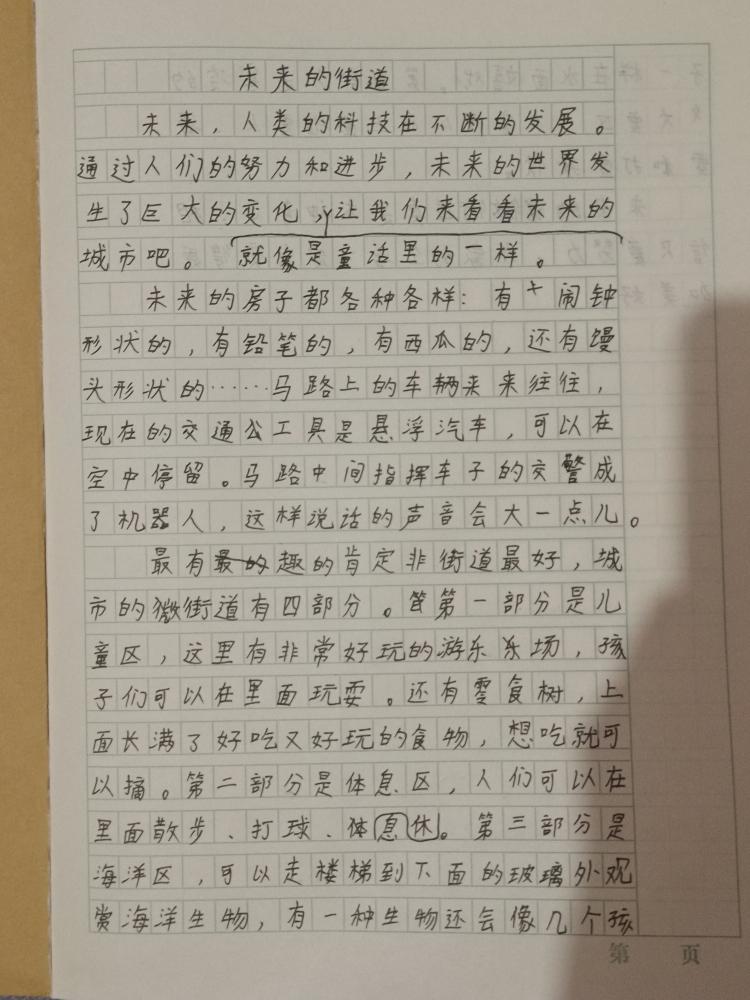 未来的街道
未来，人类的科技在不断的发展。
通过人们的努力和进步，未来的世界发
生了巨大的变化，让我们来看看未来的
城市吧。就像是童话里的一样。
未来的房子都各种各样：有闹钟
形状的，有铅笔的，有西瓜的，还有馒
头形状的……马路上的车辆来来往往，
现在的交通公工具是悬浮汽车，可以在
空中停留。马路中间指挥车子的交警成
了机器人，这样说话的声音会大一点儿。
最有趣的肯定非街道最好，城
市的街道有四部分。第一部分是儿
童区，这里有非常好玩的游乐乐场，孩
子们可以在里面玩耍。还有零食树，上
面长满了好吃又好玩的食物，想吃就可
以摘。第二部分是体息区，人们可以在
里面散步、打球、体息休。第三部分是
海洋区，可以走楼梯到下面的玻璃外观
赏海洋生物，有一种生物还会像几个孩
第 页